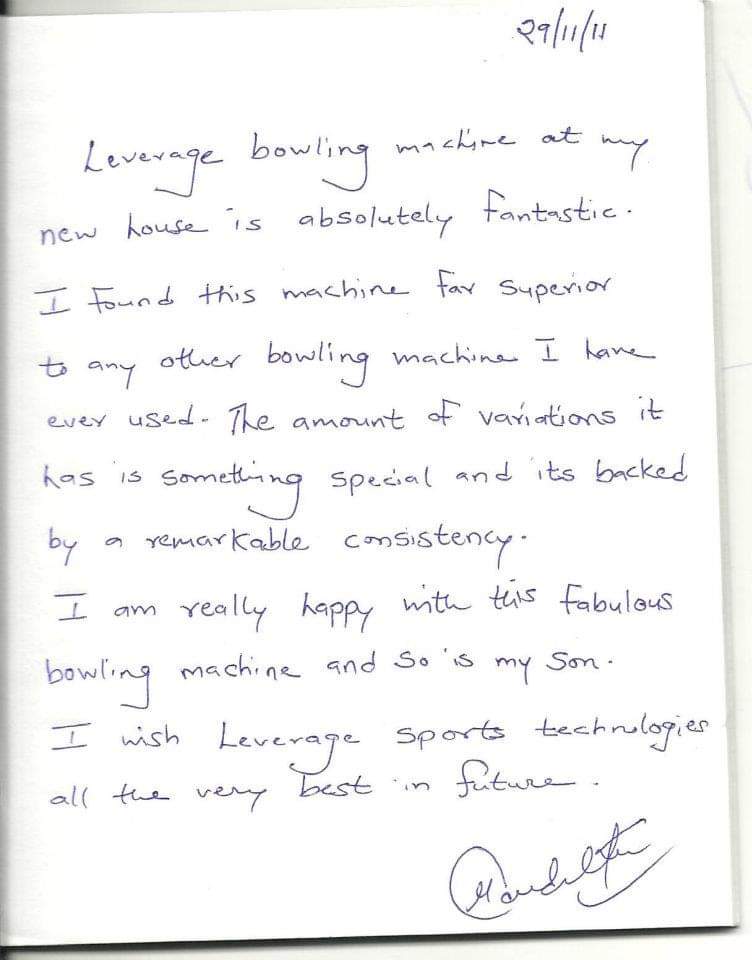 29/11/11
Leverage bowling machine at my
new house is absolutely fantastic.
I found this machine far superior
to any other bowling machine I have
ever used. The amount of variations it
has is something special and its backed
by a remarkable consistency.
I am really happy with this fabulous
bowling machine and so is my son.
I wish Leverage sports technologies
all the very best in future.